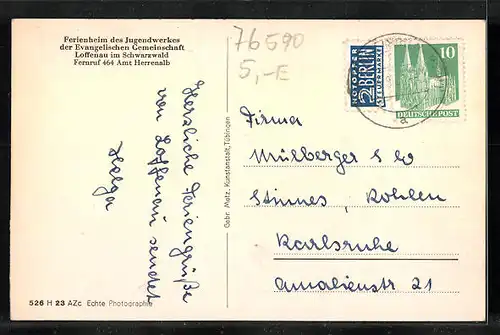 Ferienheim des Jugendwerkes
der Evangelischen Gemeinschaft
Loffenau im Schwarzwald
Fernruf 464 Amt Herrenalb
76590
5,-E
NOTOPFER
2 BERLIN
STEUERMARKE
10
DEUTSCHE POST
Herzliche Feriengrüße
von Loffenau sendet
Helga
Gebr. Metz, Kunstanstalt, Tübingen
Firma
Mülberger &
Stinnes, Kohlen
Karlsruhe
Amalienstr 21
526 H 23 AZc Echte Photographie